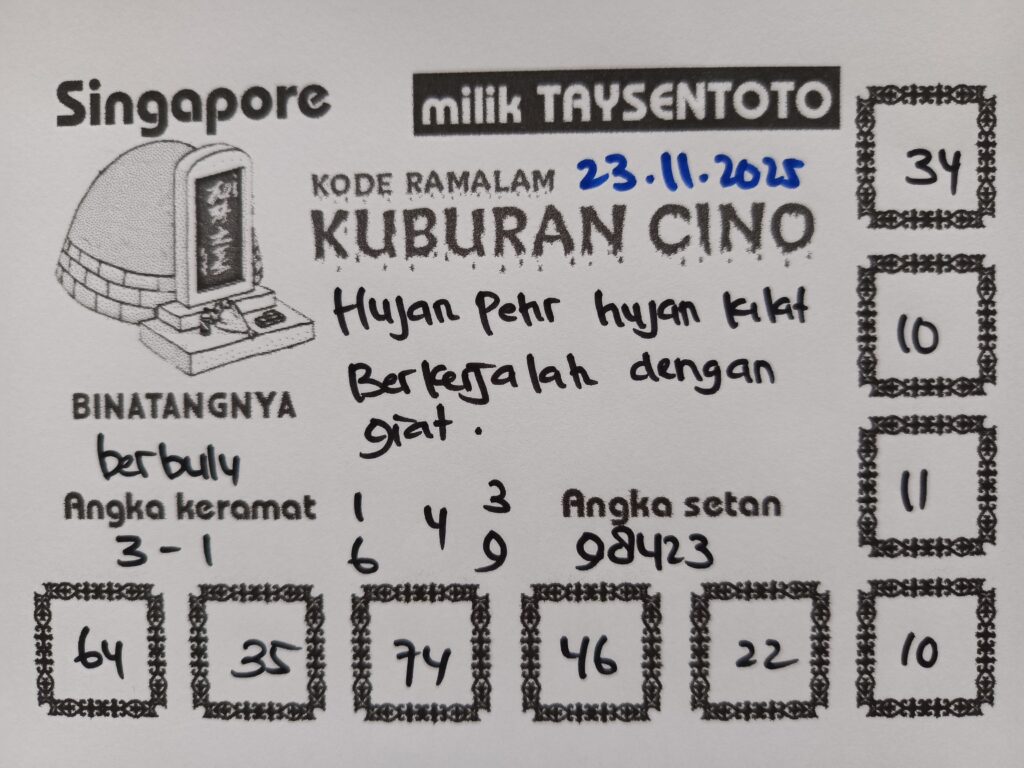 Singapore
milik TAYSENTOTO
KODE RAMALAM 23.11.2025
KUBURAN CINO
Hujan Petir hujan kilat
Berkerjalah dengan
giat.
BINATANGNYA
berbulu
Angka keramat
3 - 1
1 3
4
6 9
Angka setan
98423
34
10
11
64 35 74 46 22 10